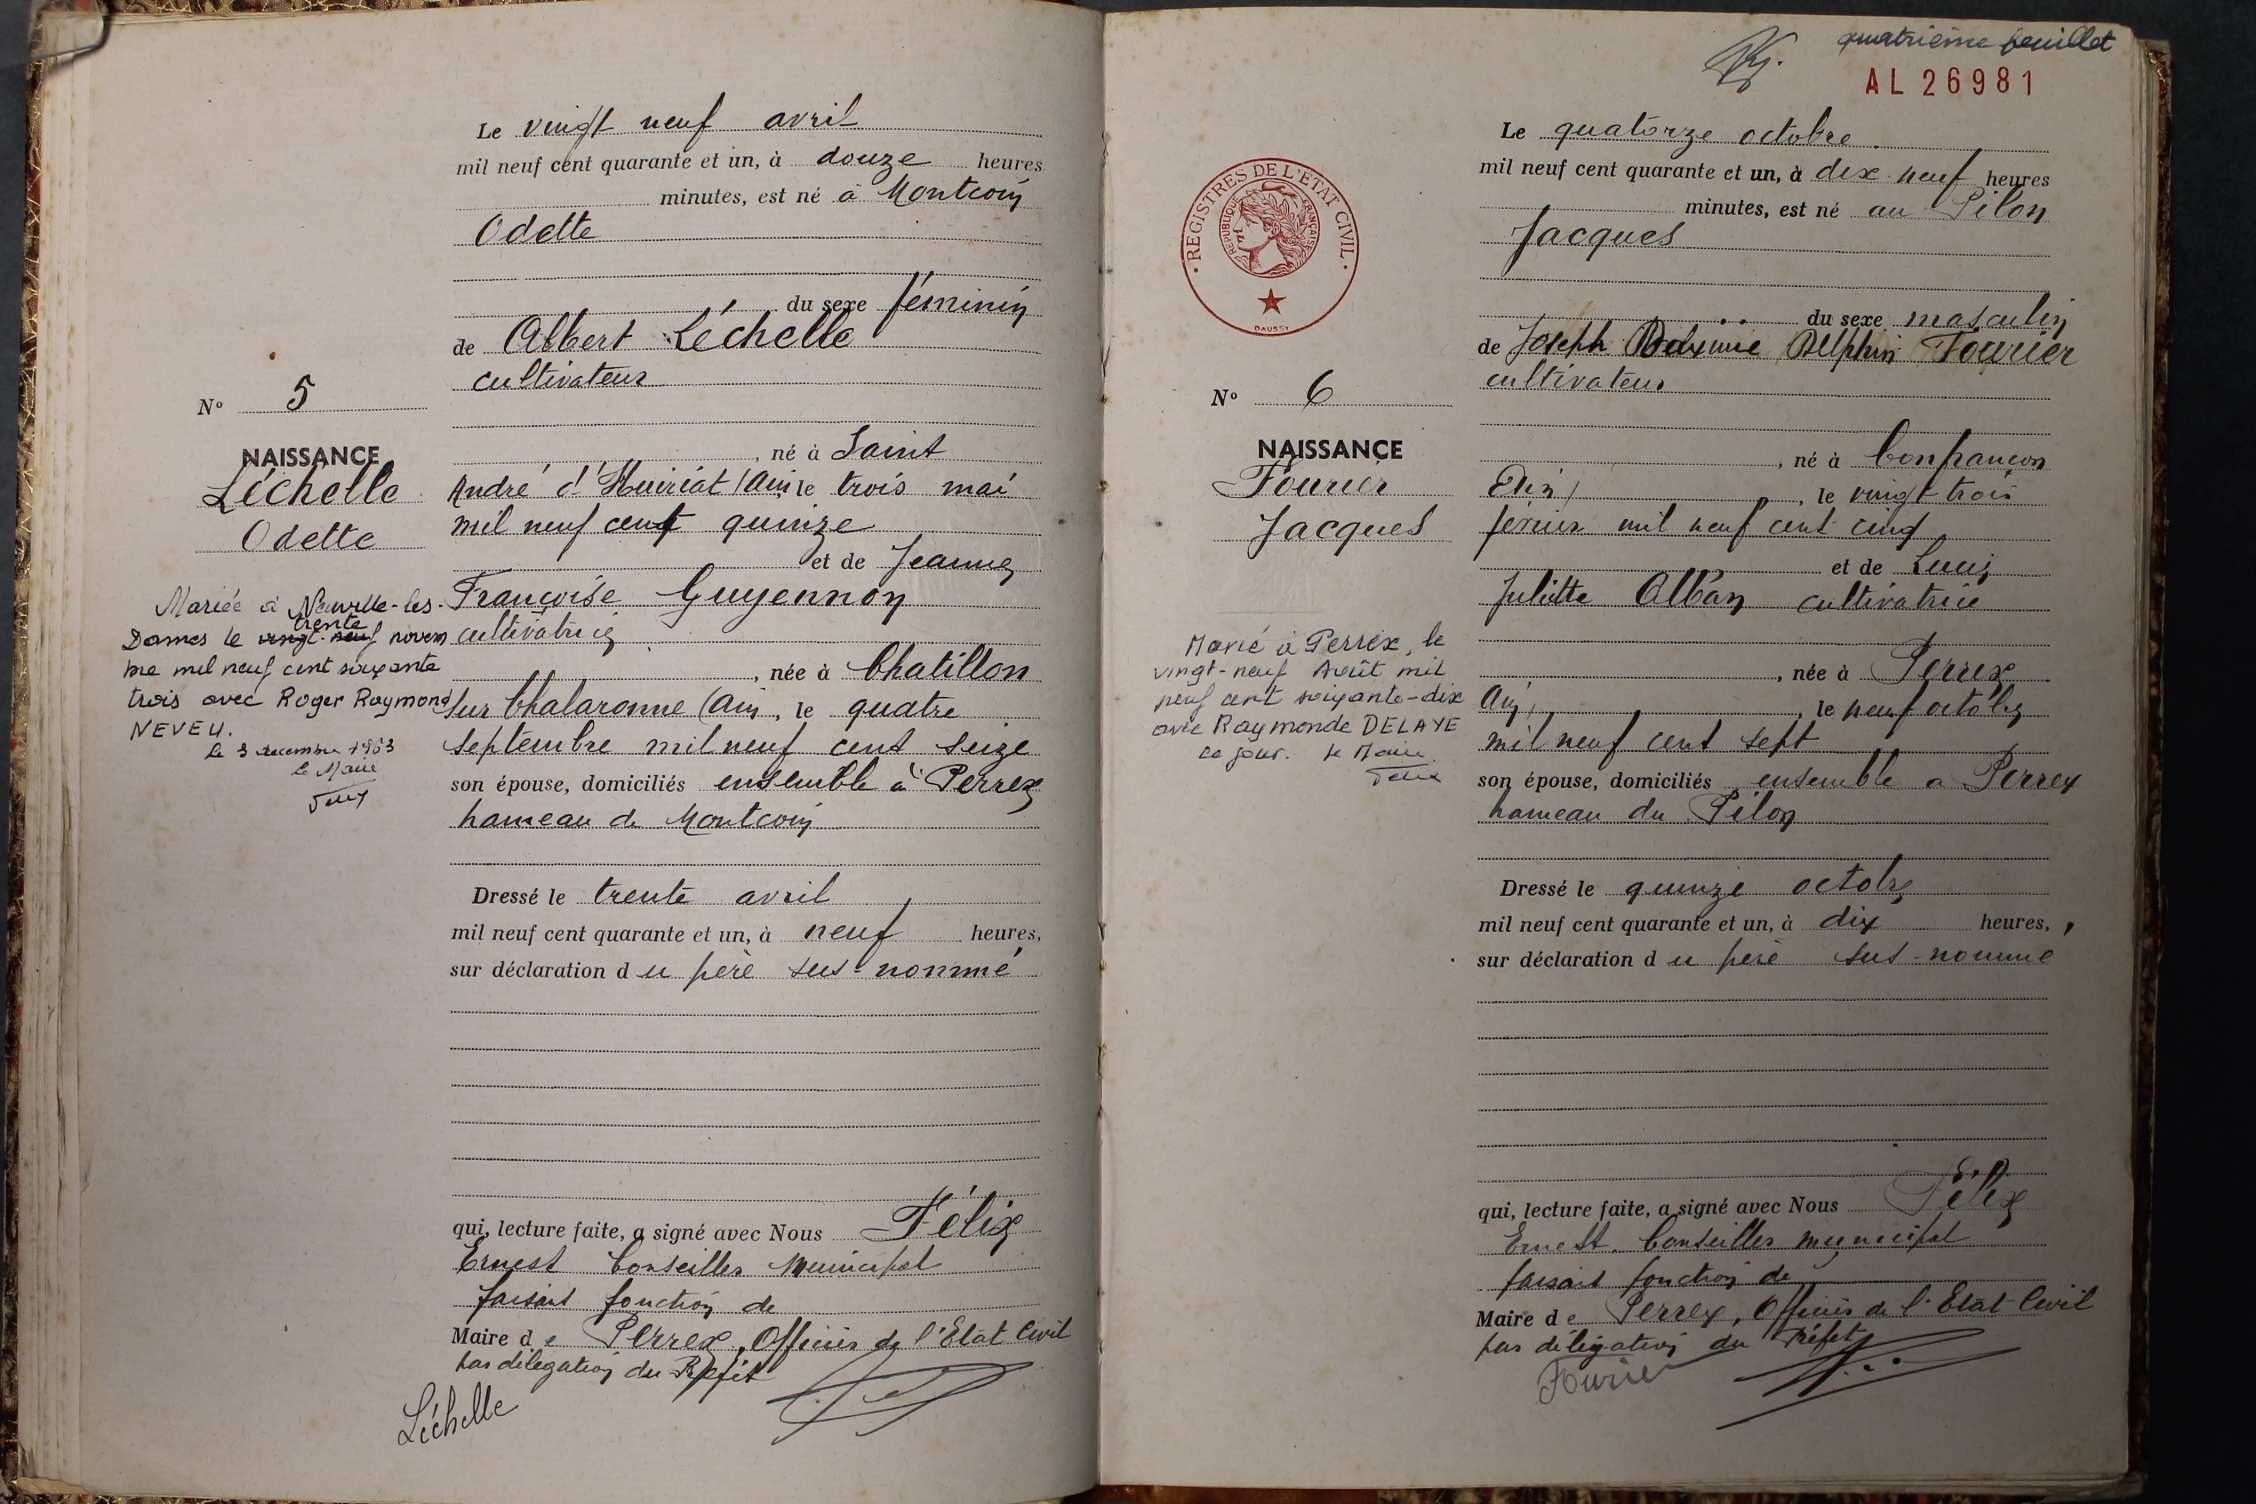 Le vingt neuf avril
mil neuf cent quarante et un, à douze heures
minutes, est né à Montcoin
Odette
du sexe féminin
de Albert Léchelle
cultivateur
N° 5
NAISSANCE
Léchelle
Odette
, né à Saint
André d'Huiriat (Ain, le trois mai
mil neuf cent quinze
et de Jeanne
Françoise Guyennon
cultivatrice
, née à Chatillon
sur Chalaronne (Ain, le quatre
septembre mil neuf cent seize
son épouse, domiciliés ensemble à Perrex
hameau de Montcoin
Mariée à Neuville-les-
Dames le vingt-neuf trente novem
bre mil neuf cent soixante
trois avec Roger Raymond
NEVEU.
le 3 décembre 1963
le Maire
Dressé le trente avril
mil neuf cent quarante et un, à neuf heures,
sur déclaration du père sus-nommé
qui, lecture faite, a signé avec Nous Félix
Ernest Conseiller Municipal
faisant fonction de
Maire de Perrex, Officier de l'Etat Civil
par délégation du Préfet
Léchelle
quatrième feuillet
AL 26981
REGISTRES DE L'ETAT CIVIL
REPUBLIQUE FRANÇAISE
DAUSSY
Le quatorze octobre
mil neuf cent quarante et un, à dix neuf heures
minutes, est né au Pilon
Jacques
du sexe masculin
de Joseph Delphin Fourier
cultivateur
N° 6
NAISSANCE
Fourier
Jacques
, né à Confrançon
(Ain) , le vingt trois
février mil neuf cent cinq
et de Lucie
Juliette Alban cultivatrice
, née à Perrex
Ain, , le neuf octobre
mil neuf cent sept
son épouse, domiciliés ensemble a Perrex
hameau du Pilon
Marié à Perrex, le
vingt-neuf Août mil
neuf cent soixante-dix
avec Raymonde DELAYE
ce jour. le Maire
Dressé le quinze octobre
mil neuf cent quarante et un, à dix heures,
sur déclaration du père sus-nommé
qui, lecture faite, a signé avec Nous Félix
Ernest Conseiller municipal
faisant fonction de
Maire de Perrex, Officier de l'Etat Civil
par délégation du Préfet
Fourier